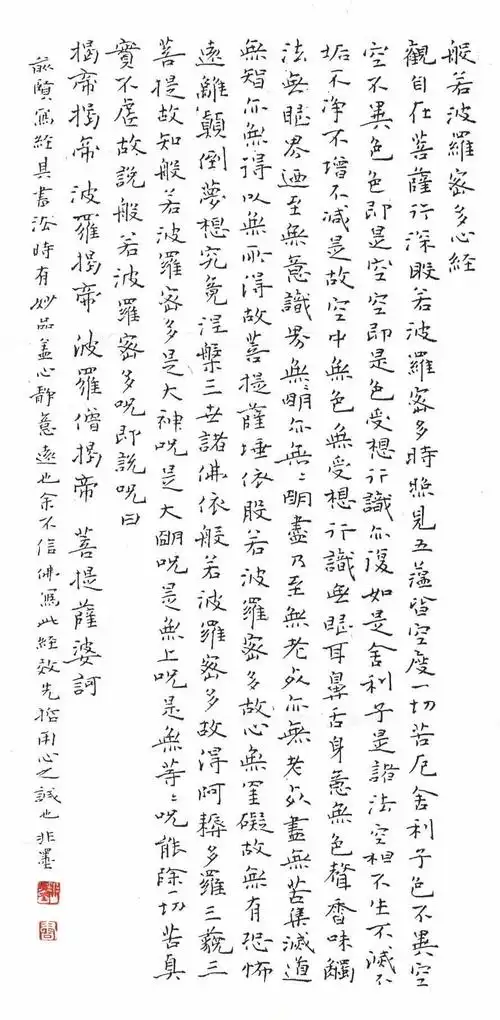 般若波羅密多心經
觀自在菩薩行深般若波羅密多時照見五蘊皆空度一切苦厄舍利子色不異空
空不異色色即是空空即是色受想行識亦復如是舍利子是諸法空相不生不滅不
垢不净不增不减是故空中無色無受想行識無眼耳鼻舌身意無色聲香味觸
法無眼界迺至無意識界無明亦無〻明盡乃至無老死亦無老死盡無苦集滅道
無智亦無得以無所得故菩提薩埵依般若波羅密多故心無罣礙故無有恐怖
遠離顛倒夢想究竟涅槃三世諸佛依般若波羅密多故得阿耨多羅三藐三
菩提故知般若波羅密多是大神呪是大明呪是無上呪是無等〻呪能除一切苦真
實不虛故說般若波羅密多呪即說呪曰
揭帝揭帝 波羅揭帝 波羅僧揭帝 菩提薩婆訶
前賢寫經具書法時有妙品蓋心靜意遠也余不信佛寫此經效先哲用心之誠也 非墨